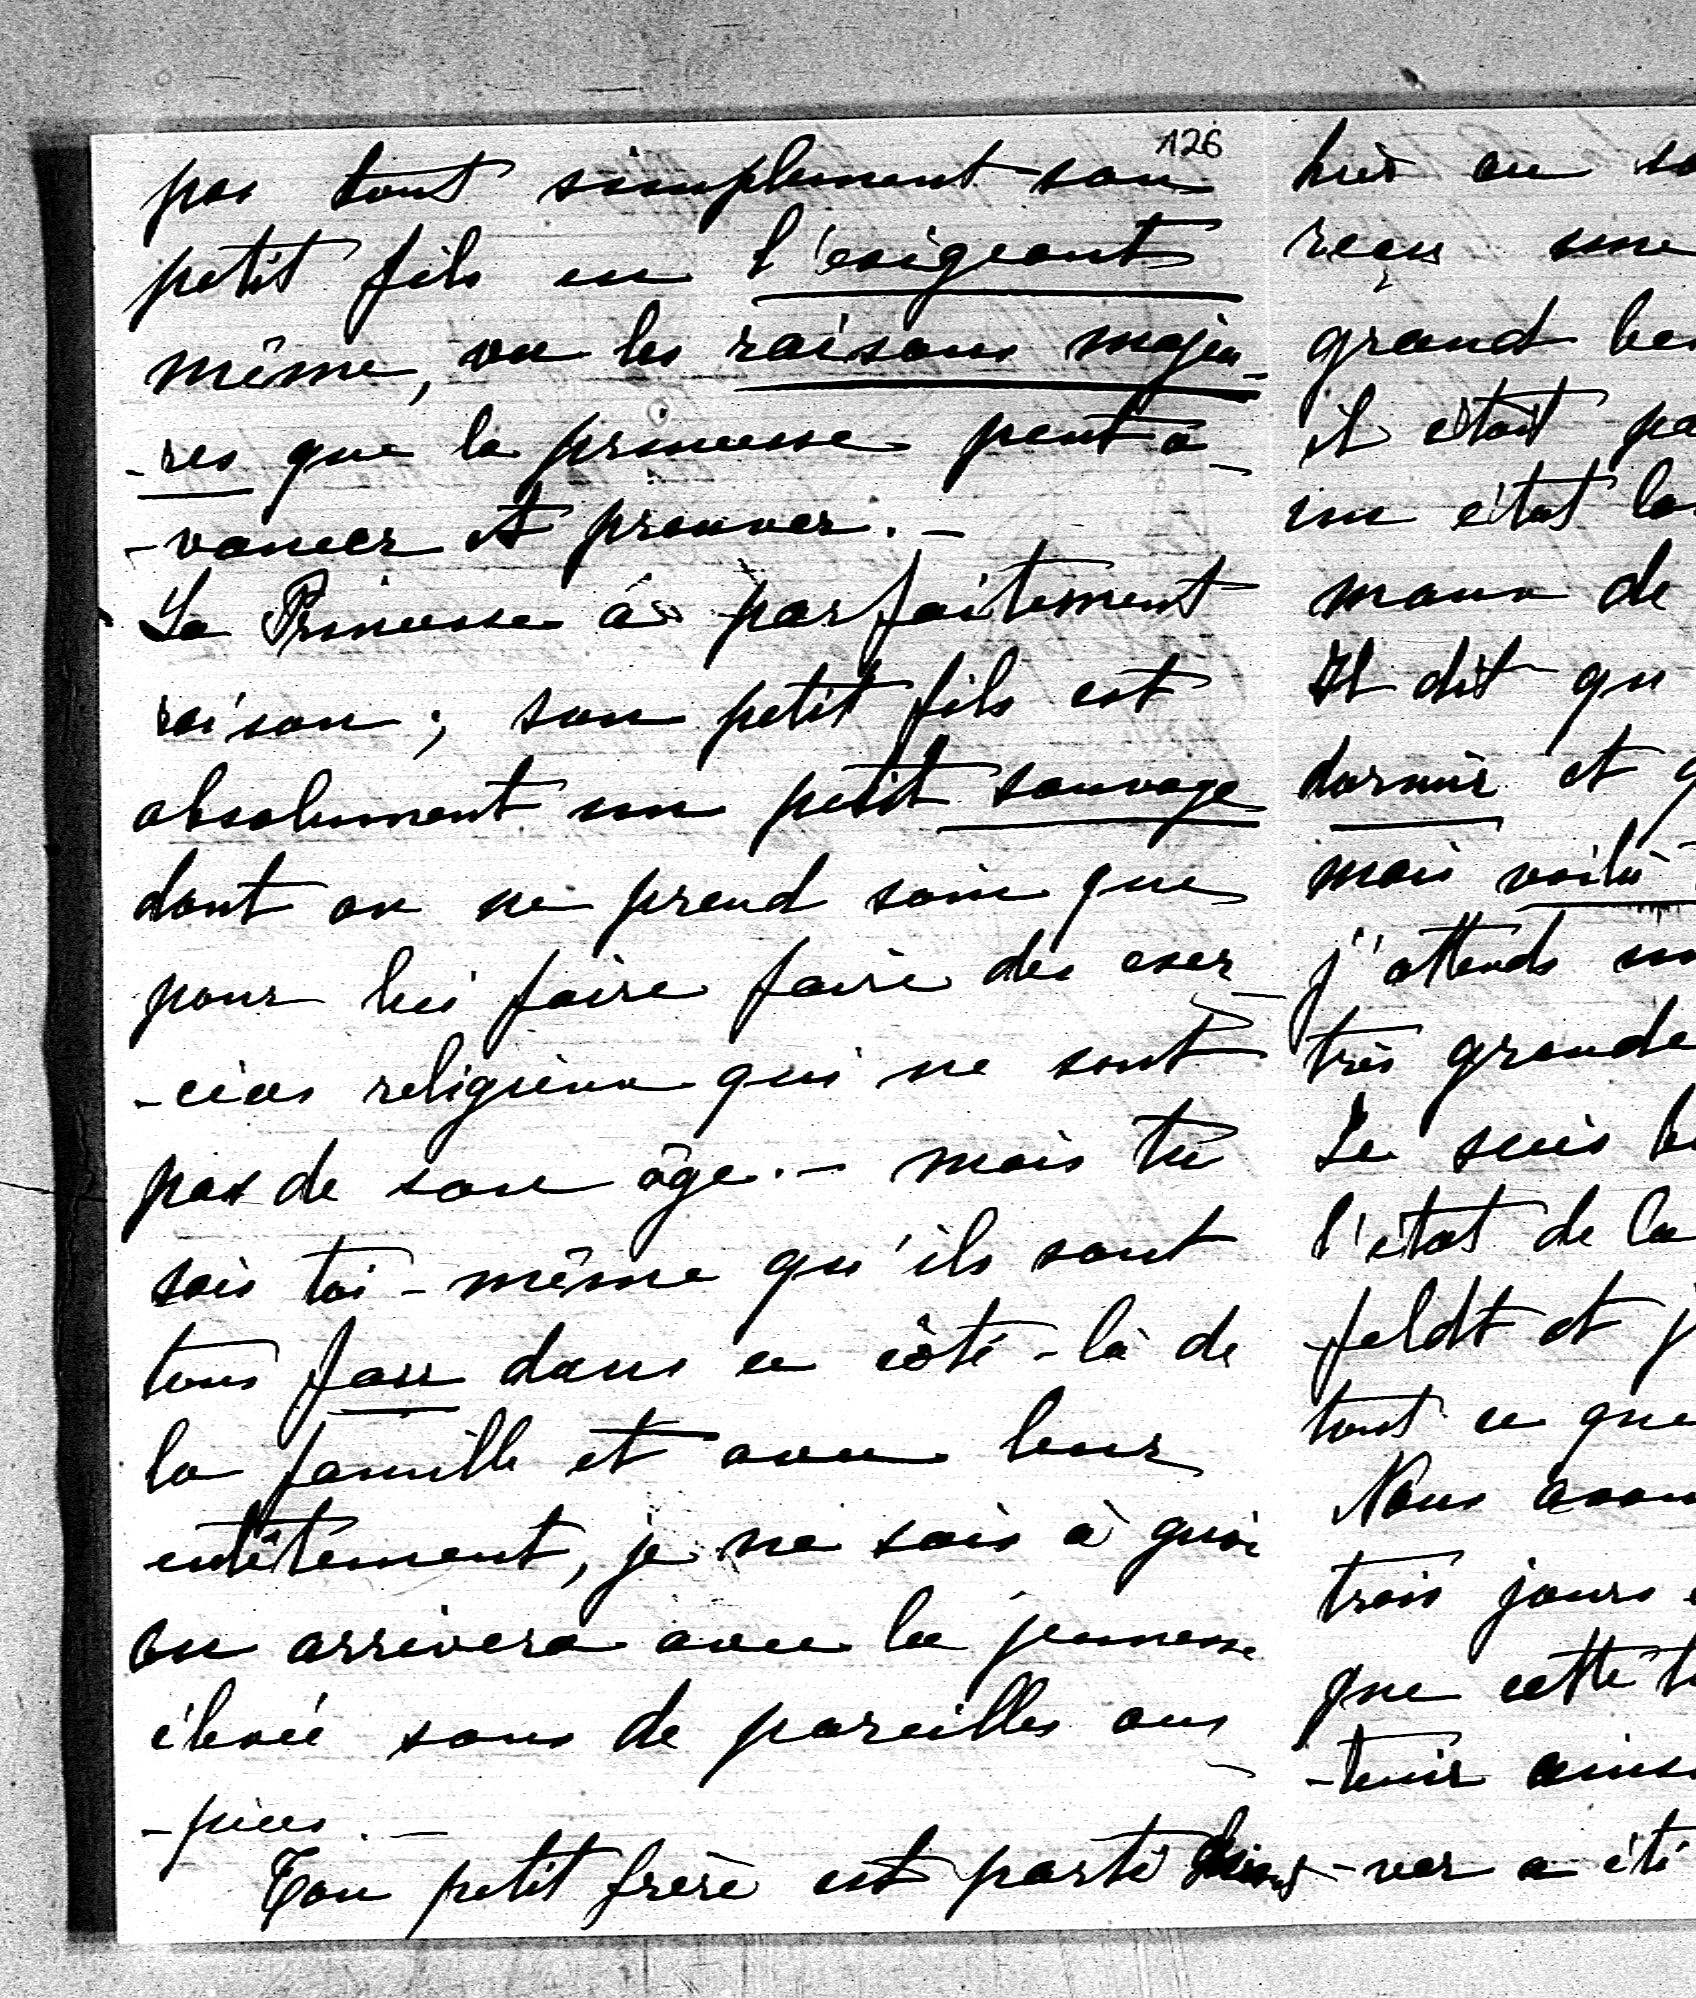 126
pas tout simplement son
petit fils en l'exigeant
même, vu les raisons majeu-
-res que la princesse peut a-
-vancer et prouver. -
La Princesse a parfaitement
raison ; son petit fils est
absolument un petit sauvage
dont on ne prend soin que
pour lui faire faire des exer-
-cices religieux qui ne sont
pas de son âge. - mais tu
sais toi-même qu'ils sont
tous fous dans ce côté-là de
la famille et avec leur
entêtement, je ne sais à quoi
on arrivera avec la jeunesse
élevée sous de pareilles aus-
-pices. -
Ton petit frère est parti
hier au so
reçu une
grand be
il était pa
un état la
maux de
Il dit qu
dormir et q
mais voilà
j'attends un
très grande
Je suis b
l'état de la
feldt et j
tout ce que
Nous avon
trois jours
que cette
-tenir ains
-ver a été